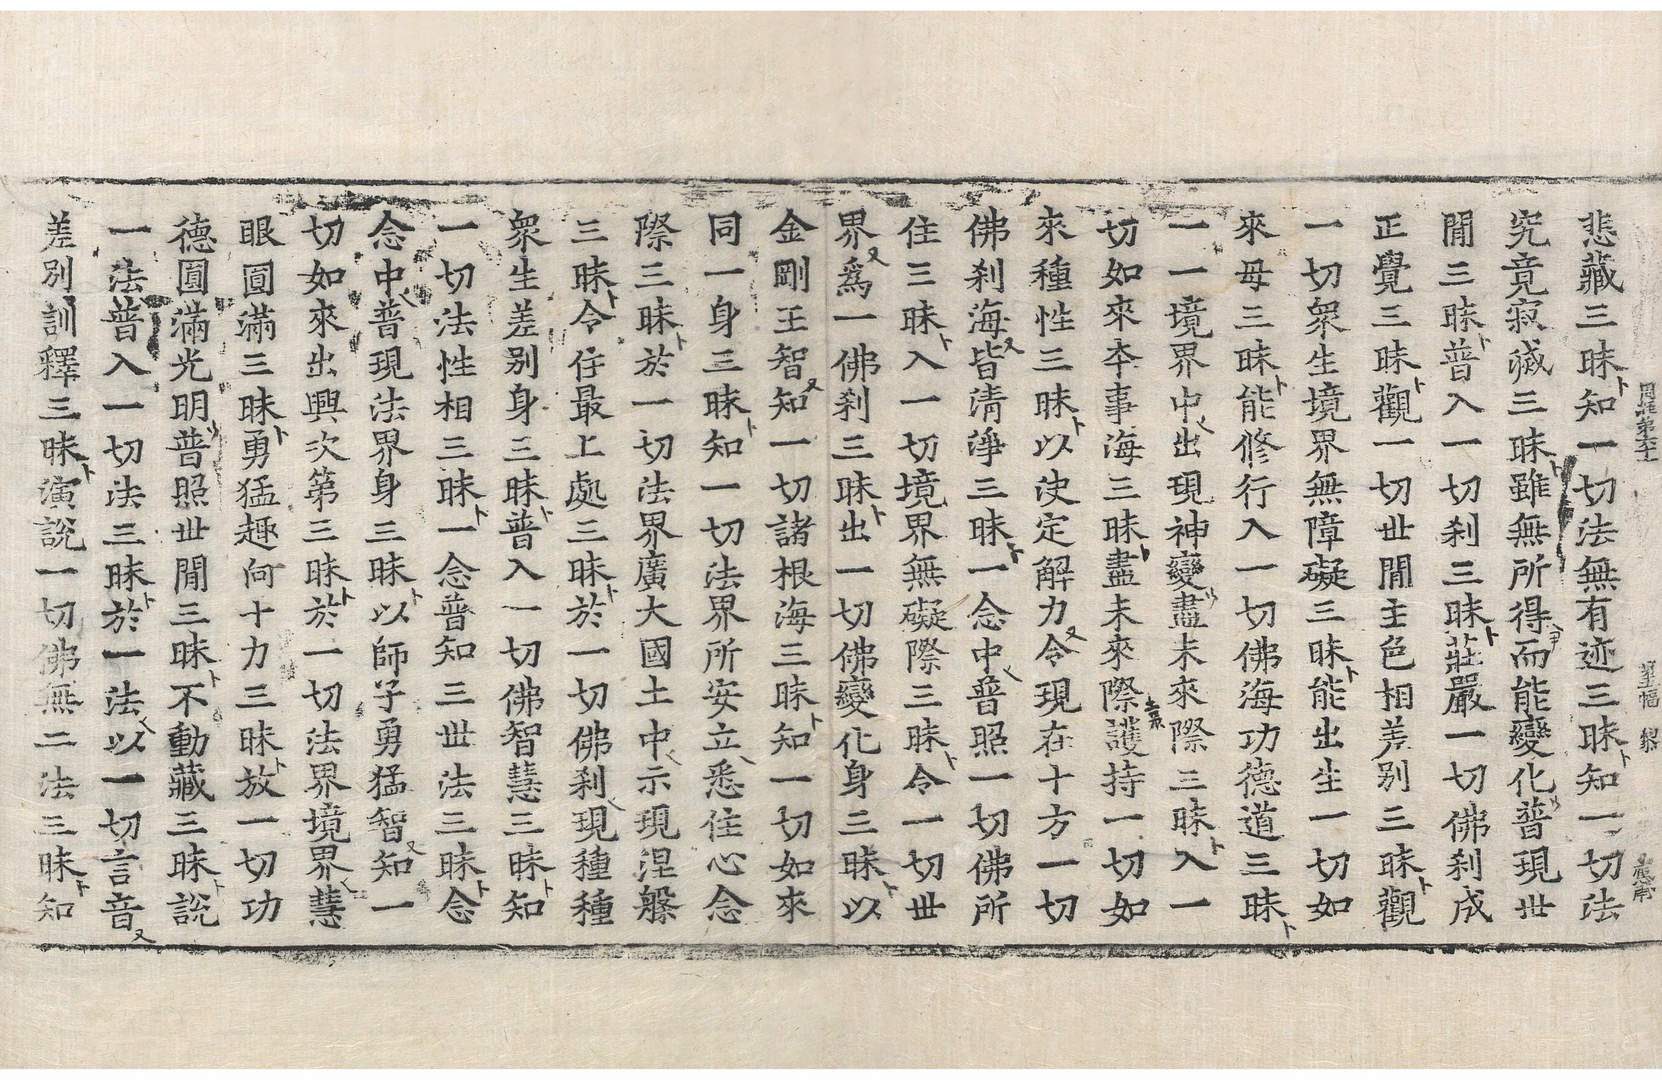 悲藏三昧知一切法無有迹三昧知一切法
究竟寂滅三昧雖無所得而能變化普現世
閒三昧普入一切刹三昧莊嚴一切佛刹成
正覺三昧觀一切世閒主色相差別三昧觀
一切衆生境界無障礙三昧能出生一切如
來母三昧能修行入一切佛海功德道三昧
一一境界中出現神變盡未來際三昧入一
切如來本事海三昧盡未來際護持一切如
來種性三昧以決定解力令現在十方一切
佛刹海皆清淨三昧一念中普照一切佛所
住三昧入一切境界無礙際三昧令一切世
界爲一佛刹三昧出一切佛變化身三昧以
金剛王智知一切諸根海三昧知一切如來
同一身三昧知一切法界所安立悉住心念
際三昧於一切法界廣大國土中示現涅槃
三昧令住最上處三昧於一切佛刹現種種
衆生差別身三昧普入一切佛智慧三昧知
一切法性相三昧一念普知三世法三昧念
念中普現法界身三昧以師子勇猛智知一
切如來出興次第三昧於一切法界境界慧
眼圓滿三昧勇猛趣向十力三昧放一切功
德圓滿光明普照世閒三昧不動藏三昧說
一法普入一切法三昧於一法以一切言音
差別訓釋三昧演說一切佛無二法三昧知